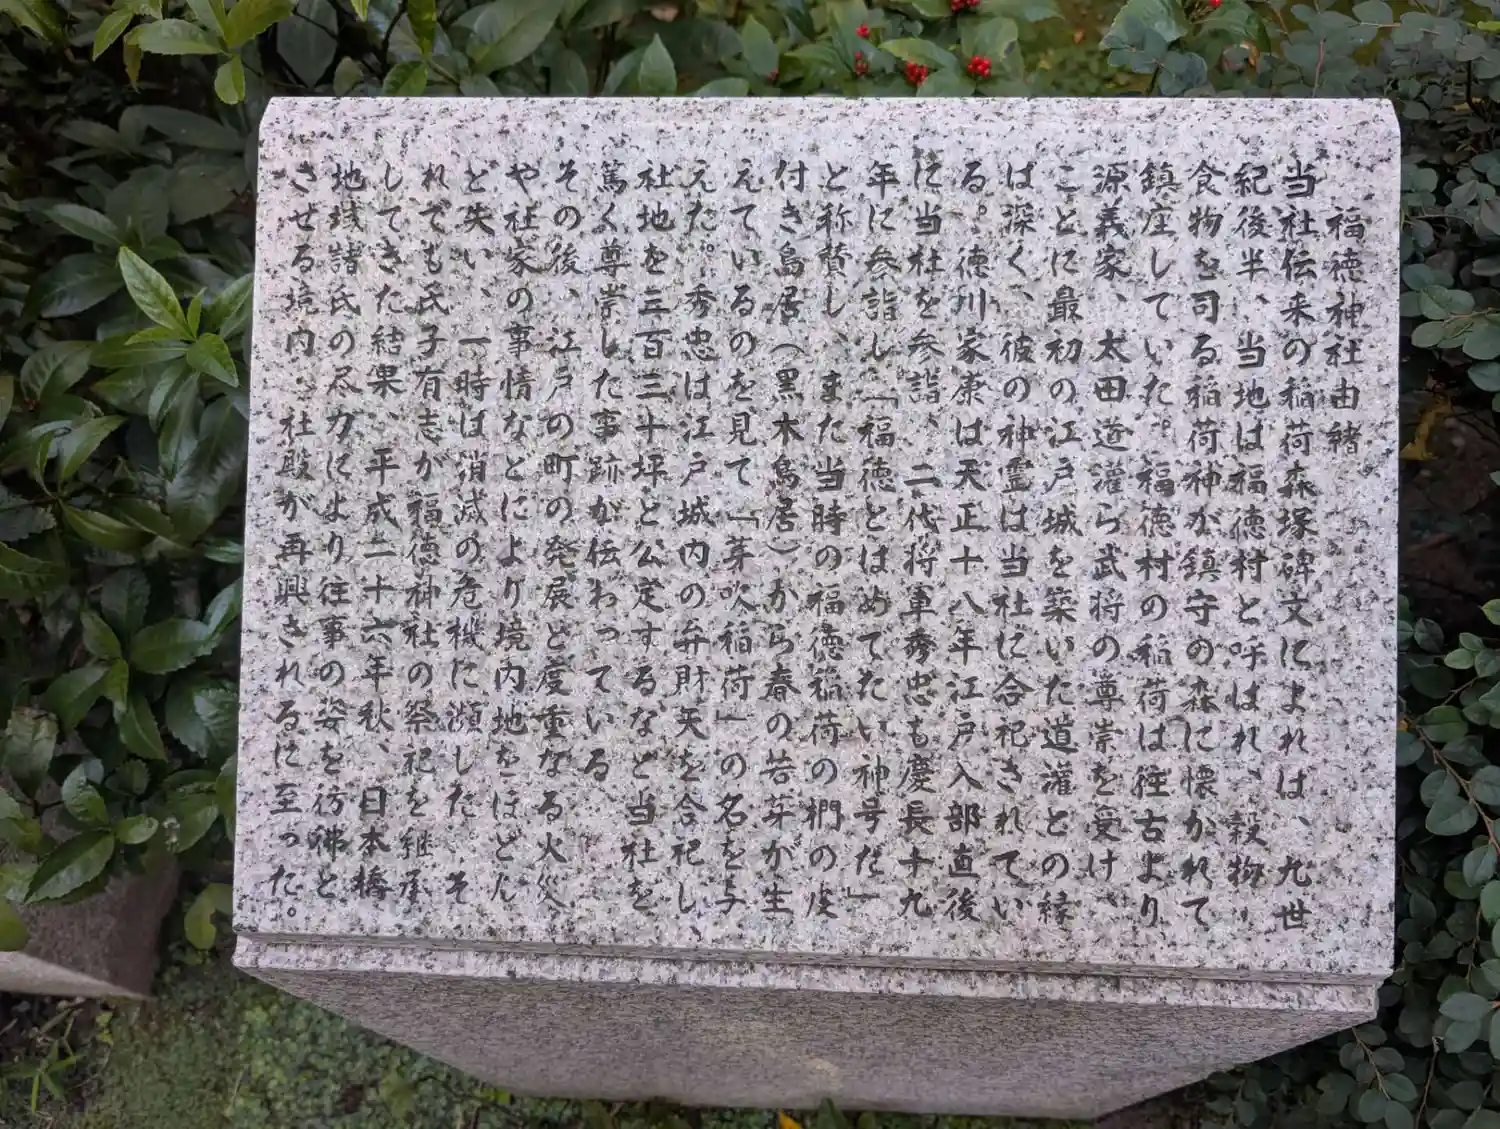 福徳神社由緒
当社伝来の稲荷森塚碑文によれば、九世
紀後半、当地は福徳村と呼ばれ、穀物・
食物を司る稲荷神が鎮守の森に懐かれて
鎮座していた。福徳村の稲荷は往古より
源義家、太田道灌ら武将の尊崇を受け、
ことに最初の江戸城を築いた道灌との縁
は深く、彼の神霊は当社に合祀されてい
る。徳川家康は天正十八年江戸入部直後
に当社を参詣、二代将軍秀忠も慶長十九
年に参詣し「福徳とはめでたい神号だ」
と称賛し、また当時の福徳稲荷の椚の皮
付き鳥居（黒木鳥居）から春の若芽が生
えているのを見て「芽吹稲荷」の名を与
えた。秀忠は江戸城内の弁財天を合祀し、
社地を三百三十坪と公定するなど当社を
篤く尊崇した事跡が伝わっている。
その後、江戸の町の発展と度重なる火災、
や社家の事情などにより境内地をほとん
ど失い、一時は消滅の危機に瀕した。そ
れでも氏子有志が福徳神社の祭祀を継承
してきた結果、平成二十六年秋、日本橋
地域諸氏の尽力により往事の姿を彷彿と
させる境内、社殿が再興されるに至った。